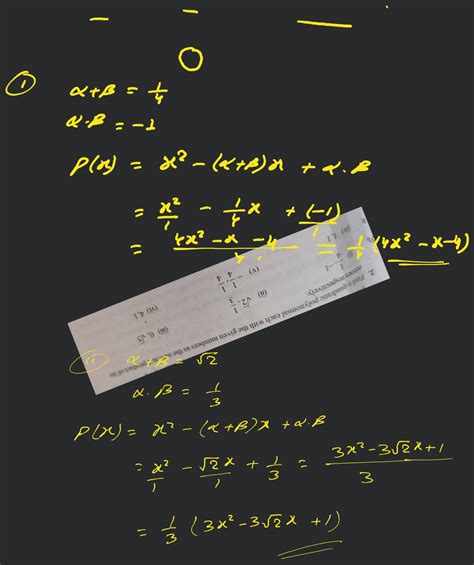 ①
α+β = 1/4
α.β = -1
P(x) = x² - (α+β)x + α.β
= x²/1 - 1/4 x + (-1)/1
= 4x² - x - 4 / 4 = 1/4 (4x² - x - 4)
2. Find a quadratic polynomial each with the given numbers as the product of its
zeroes respectively.
1/4, -1
(ii) √2, 1/3
(iii) 0, √5
(v) -1/4, 1/4
(vi) 4, 1
(ii) α+β = √2
α.β = 1/3
P(x) = x² - (α+β)x + α.β
= x²/1 - √2x/1 + 1/3 = 3x² - 3√2x + 1 / 3
= 1/3 (3x² - 3√2x + 1)